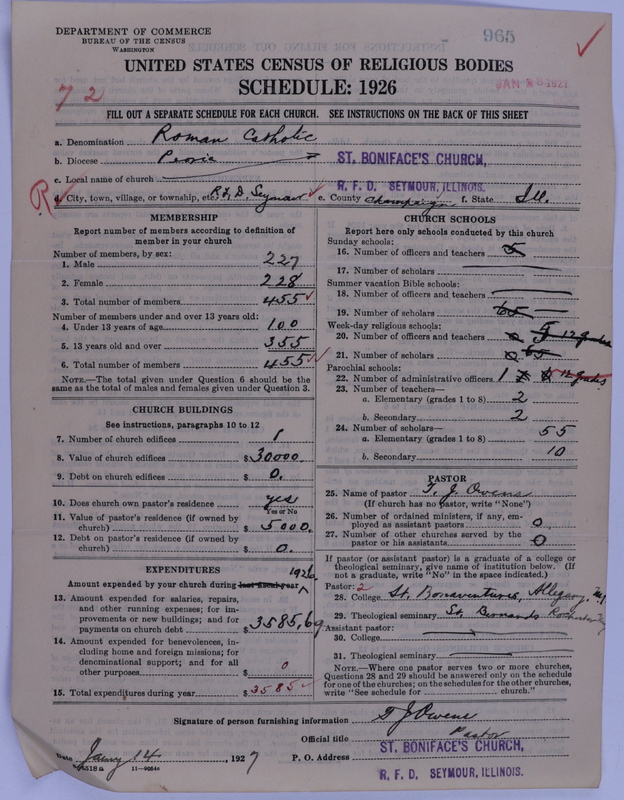 DEPARTMENT OF COMMERCE
BUREAU OF THE CENSUS
WASHINGTON
965
UNITED STATES CENSUS OF RELIGIOUS BODIES
JAN 28 1927
SCHEDULE: 1926
72
FILL OUT A SEPARATE SCHEDULE FOR EACH CHURCH. SEE INSTRUCTIONS ON THE BACK OF THIS SHEET
a. Denomination Roman Catholic
b. Diocese Peoria
ST. BONIFACE'S CHURCH,
c. Local name of church
R. F. D. SEYMOUR, ILLINOIS.
R
d. City, town, village, or township, etc. R.F.D. Seymour e. County Champaign f. State Ill.
MEMBERSHIP
Report number of members according to definition of
member in your church
Number of members, by sex:
1. Male 227
2. Female 228
3. Total number of members 455
Number of members under and over 13 years old:
4. Under 13 years of age 100
5. 13 years old and over 355
6. Total number of members 455
NOTE.—The total given under Question 6 should be
same as the total of males and females given under Question 3.
CHURCH BUILDINGS
See instructions, paragraphs 10 to 12
7. Number of church edifices 1
8. Value of church edifices $30000.
9. Debt on church edifices $0.
10. Does church own pastor's residence yes
Yes or No
11. Value of pastor's residence (if owned by
church) $5000.
12. Debt on pastor's residence (if owned by
church) $0.
EXPENDITURES
1926
Amount expended by your church during last fiscal year
13. Amount expended for salaries, repairs,
and other running expenses; for im-
provements or new buildings; and for
payments on church debt $3585.69
14. Amount expended for benevolences, in-
cluding home and foreign missions; for
denominational support; and for all
other purposes $0
15. Total expenditures during year $3585
CHURCH SCHOOLS
Report here only schools conducted by this church
Sunday schools:
16. Number of officers and teachers 5
17. Number of scholars
Summer vacation Bible schools:
18. Number of officers and teachers
19. Number of scholars 65
Week-day religious schools:
20. Number of officers and teachers 0 5 12 grades
21. Number of scholars 0 65
Parochial schools:
22. Number of administrative officers 1 12 grades
23. Number of teachers—
a. Elementary (grades 1 to 8) 2
b. Secondary 2
24. Number of scholars—
a. Elementary (grades 1 to 8) 55
b. Secondary 10
PASTOR
25. Name of pastor T. J. Owens
(If church has no pastor, write "None")
26. Number of ordained ministers, if any, em-
ployed as assistant pastors 0
27. Number of other churches served by the
pastor or his assistants 0
If pastor (or assistant pastor) is a graduate of a college or
theological seminary, give name of institution below. (If
not a graduate, write "No" in the space indicated.)
Pastor: 2
28. College St. Bonaventures, Allegany, N.Y
29. Theological seminary St. Bernards Rochester
Assistant pastor:
30. College
31. Theological seminary
NOTE.—Where one pastor serves two or more churches,
Questions 28 and 29 should be answered only on the schedule
for one of the churches; on the schedules for the other churches,
write "See schedule for church."
Signature of person furnishing information T J Owens
Official title Pastor
Date Jany 14, 1927 P. O. Address ST. BONIFACE'S CHURCH,
R. F. D. SEYMOUR, ILLINOIS.